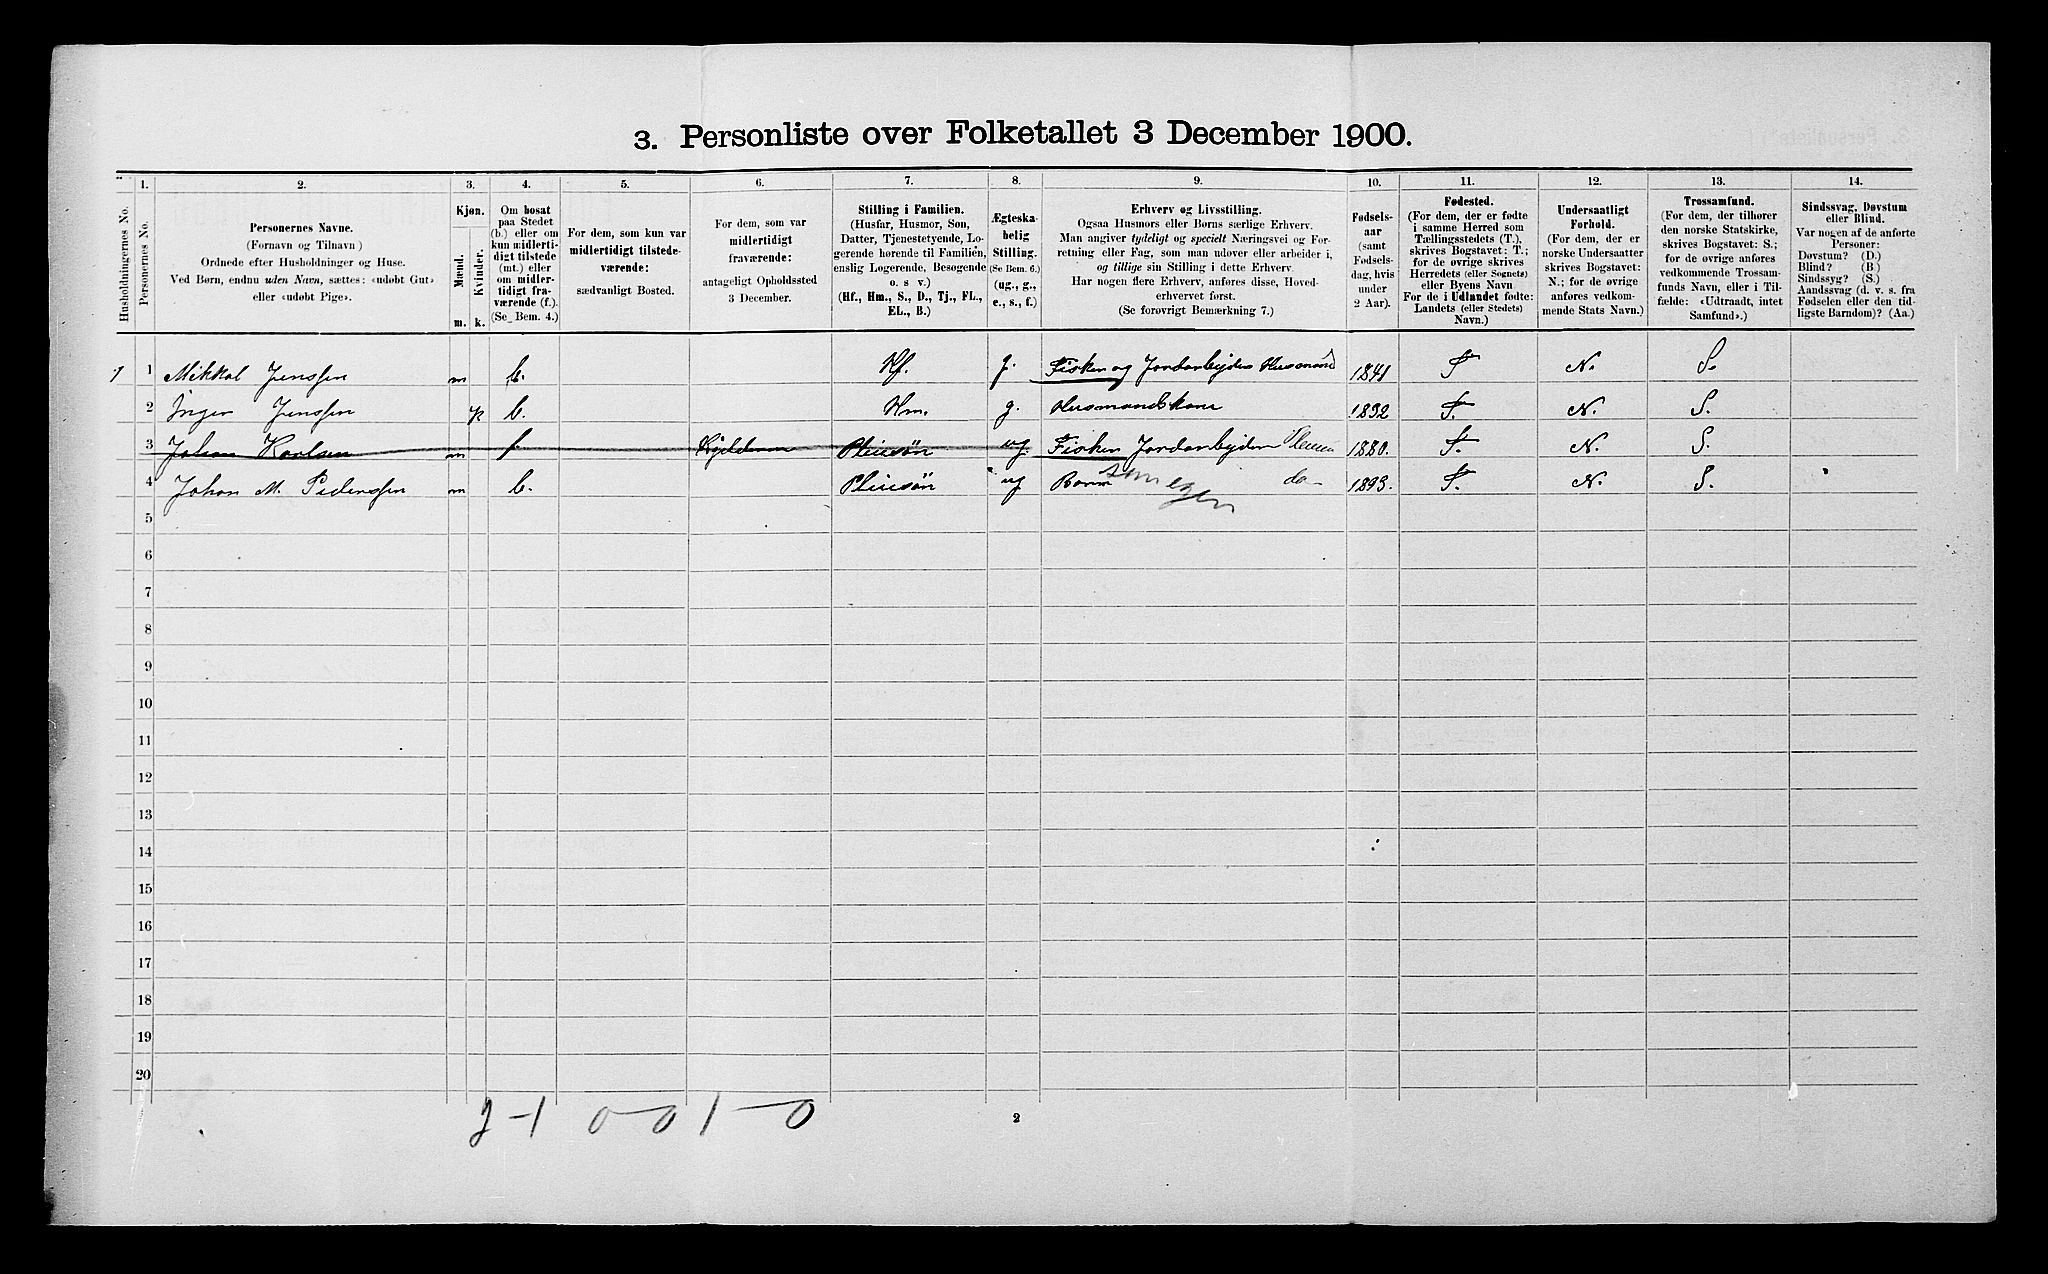 3. Personliste over Folketallet 3 December 1900.
Husholdningernes No.
1.
Personernes No.
2.
Personernes Navne.
(Fornavn og Tilnavn)
Ordnede efter Husholdninger og Huse.
Ved Børn, endnu uden Navn, sættes: «udøbt Gut»
eller «udøbt Pige».
3.
Kjøn.
Mænd.
Kvinder.
m. k.
4.
Om bosat
paa Stedet
(b.) eller om
kun midlerti-
digt tilstede
(mt.) eller
om midler-
tidigt fra-
værende (f.)
(Se Bem. 4.)
5.
For dem, som kun var
midlertidigt tilstede-
værende:
sædvanligt Bosted.
6.
For dem, som var
midlertidigt
fraværende:
antageligt Opholdssted
3 December.
7.
Stilling i Familien.
(Husfar, Husmor, Søn,
Datter, Tjenestetyende, Lo-
gerende hørende til Familien,
enslig Logerende, Besøgende
o. s. v.)
(Hf., Hm., S., D., Tj., FL.,
EL., B.)
8.
Ægteska-
belig
Stilling.
(Se Bem. 6.)
(ug., g.,
e., s., f.)
9.
Erhverv og Livsstilling.
Ogsaa Husmors eller Børns særlige Erhverv.
Man angiver tydeligt og specielt Næringsvei og For-
retning eller Fag, som man udøver eller arbeider i,
og tillige sin Stilling i dette Erhverv.
Har nogen flere Erhverv, anføres disse, Hoved-
erhvervet først.
(Se forøvrigt Bemærkning 7.)
10.
Fødsels-
aar
(samt
Fødsels-
dag, hvis
under
2 Aar).
11.
Fødested.
(For dem, der er fødte
i samme Herred som
Tællingsstedets (T.),
skrives Bogstavet: T.;
for de øvrige skrives
Herredets (eller Sognets)
eller Byens Navn
For de i Udlandet fødte:
Landets (eller Stedets)
Navn.)
12.
Undersaatligt
Forhold.
(For dem, der er
norske Undersaatter
skrives Bogstavet:
N.; for de øvrige
anføres vedkom-
mende Stats Navn.)
13.
Trossamfund.
(For dem, der tilhører
den norske Statskirke,
skrives Bogstavet: S.;
for de øvrige anføres
vedkommende Trossam-
funds Navn, eller i Til-
fælde: «Udtraadt, intet
Samfund».)
14.
Sindssvag, Døvstum
eller Blind.
Var nogen af de anførte
Personer:
Døvstum? (D.)
Blind? (B.)
Sindssyg? (S.)
Aandssvag (d. v. s. fra
Fødselen eller den tid-
ligste Barndom)? (Aa.)
1 1 Mikkal Jenssen m b. Hf. g. Fisker og Jordarbejder Husmand 1841 T N. S.
2 Inger Jenssen k b. Hm. g. Husmandskone 1832 T. N. S.
3 Johan Karlsen m f. Pleiesøn ug. Fisker Jordarbejder 1880. T. N. S.
4 Johan M. Pedersen m b. Pleiesøn ug Barn som egen do- 1893. T. N. S.
5
6
7
8
9
10
11
12
13
14
15
16
17
18
19
20
2-1 0-0 1-0
2